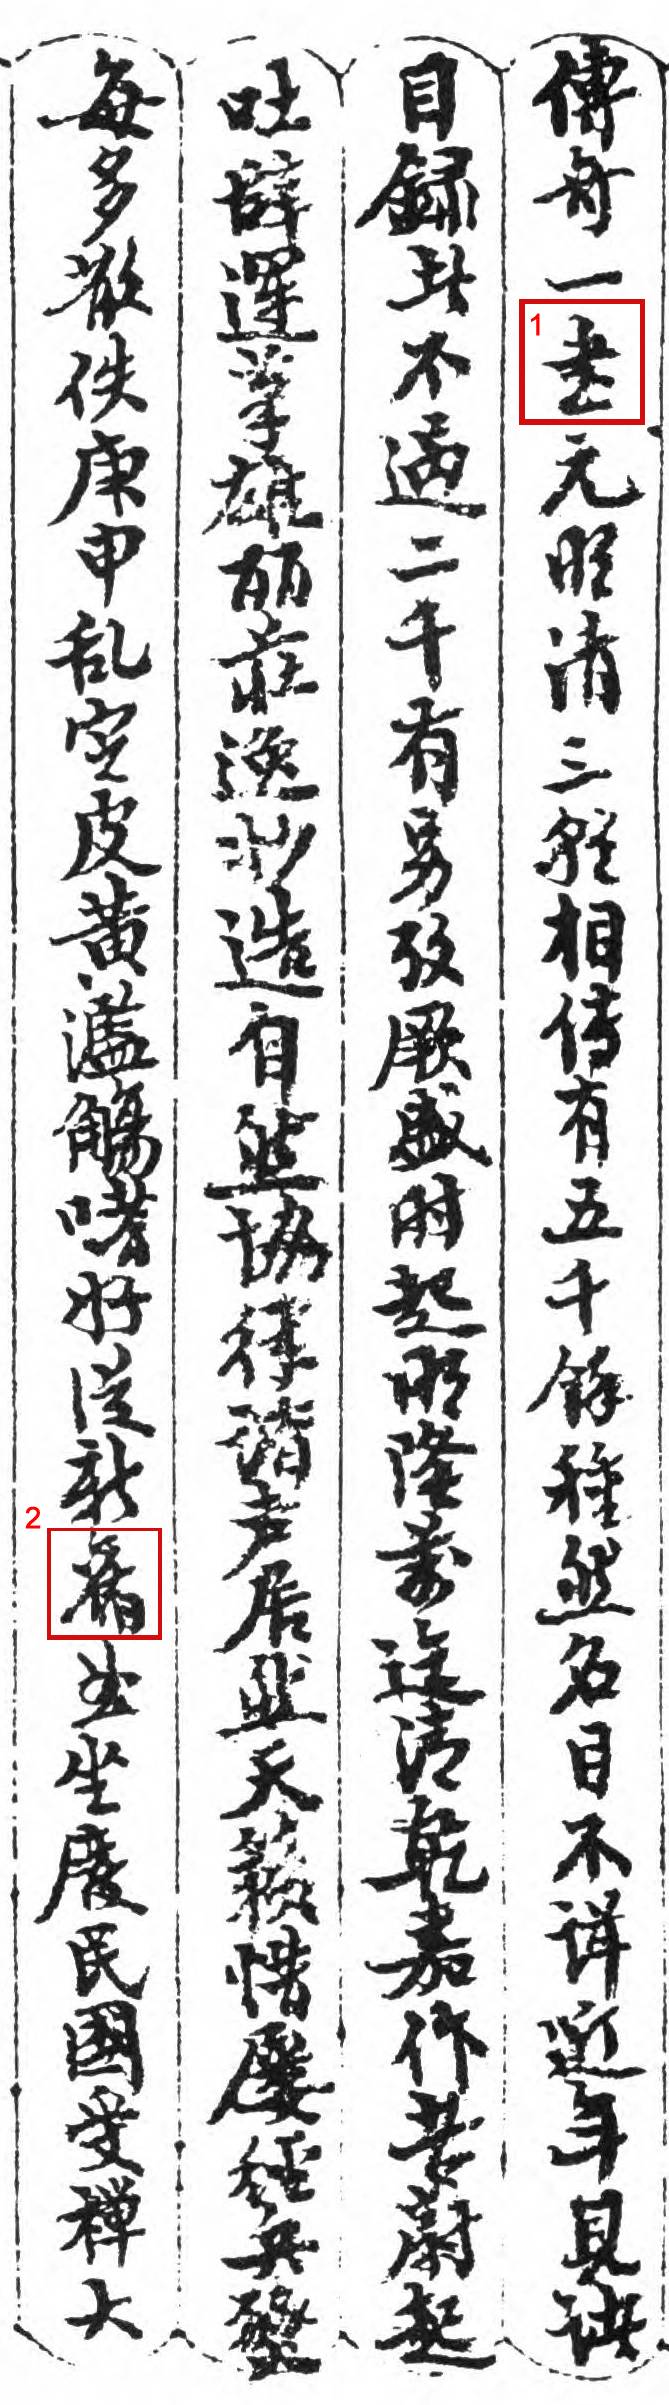 傳奇一書元明清三朝相傳有五千餘種然名目不詳近年見諸
目錄此不過二千有另攷厥盛时起明隆萬迄清乾嘉作者蔚起
吐辞運筆雄丽莊逸妙造自然協律諧声居然天籟惜屢經兵燹
每多散佚庚申乱定皮黃濫觴嗜好從新舊坐廢民國受禪大
1
2